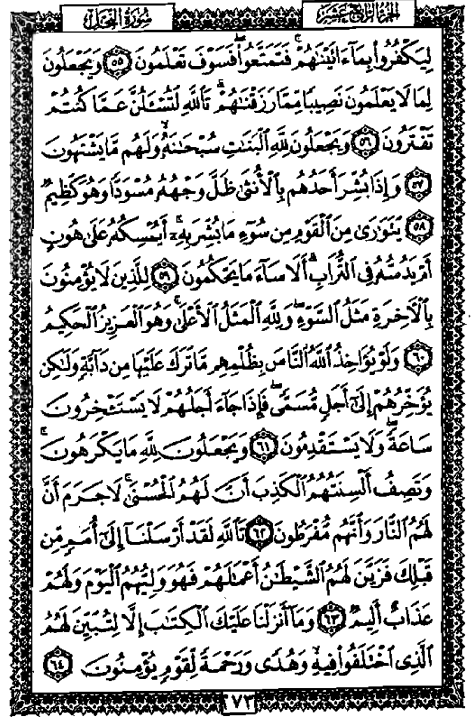 الجزء الرابع عشر
سورة النحل
لِيَكْفُرُوا۟ بِمَآ ءَاتَيْنَٰهُمْ ۚ فَتَمَتَّعُوا۟ ۖ فَسَوْفَ تَعْلَمُونَ ٥٥ وَيَجْعَلُونَ
لِمَا لَا يَعْلَمُونَ نَصِيبًا مِّمَّا رَزَقْنَٰهُمْ ۗ تَٱللَّهِ لَتُسْـَٔلُنَّ عَمَّا كُنتُمْ
تَفْتَرُونَ ٥٦ وَيَجْعَلُونَ لِلَّهِ ٱلْبَنَٰتِ سُبْحَٰنَهُۥ ۙ وَلَهُم مَّا يَشْتَهُونَ
٥٧ وَإِذَا بُشِّرَ أَحَدُهُم بِٱلْأُنثَىٰ ظَلَّ وَجْهُهُۥ مُسْوَدًّا وَهُوَ كَظِيمٌ
٥٨ يَتَوَٰرَىٰ مِنَ ٱلْقَوْمِ مِن سُوٓءِ مَا بُشِّرَ بِهِۦٓ ۚ أَيُمْسِكُهُۥ عَلَىٰ هُونٍ
أَمْ يَدُسُّهُۥ فِى ٱلتُّرَابِ ۗ أَلَا سَآءَ مَا يَحْكُمُونَ ٥٩ لِلَّذِينَ لَا يُؤْمِنُونَ
بِٱلْءَاخِرَةِ مَثَلُ ٱلسَّوْءِ ۖ وَلِلَّهِ ٱلْمَثَلُ ٱلْأَعْلَىٰ ۚ وَهُوَ ٱلْعَزِيزُ ٱلْحَكِيمُ
٦٠ وَلَوْ يُؤَاخِذُ ٱللَّهُ ٱلنَّاسَ بِظُلْمِهِم مَّا تَرَكَ عَلَيْهَا مِن دَآبَّةٍ وَلَٰكِن
يُؤَخِّرُهُمْ إِلَىٰٓ أَجَلٍ مُّسَمًّى ۖ فَإِذَا جَآءَ أَجَلُهُمْ لَا يَسْتَـْٔخِرُونَ
سَاعَةً ۖ وَلَا يَسْتَقْدِمُونَ ٦١ وَيَجْعَلُونَ لِلَّهِ مَا يَكْرَهُونَ ۚ
وَتَصِفُ أَلْسِنَتُهُمُ ٱلْكَذِبَ أَنَّ لَهُمُ ٱلْحُسْنَىٰ ۖ لَا جَرَمَ أَنَّ
لَهُمُ ٱلنَّارَ وَأَنَّهُم مُّفْرَطُونَ ٦٢ تَٱللَّهِ لَقَدْ أَرْسَلْنَآ إِلَىٰٓ أُمَمٍ مِّن
قَبْلِكَ فَزَيَّنَ لَهُمُ ٱلشَّيْطَٰنُ أَعْمَٰلَهُمْ فَهُوَ وَلِيُّهُمُ ٱلْيَوْمَ وَلَهُمْ
عَذَابٌ أَلِيمٌ ٦٣ وَمَآ أَنزَلْنَا عَلَيْكَ ٱلْكِتَٰبَ إِلَّا لِتُبَيِّنَ لَهُمُ
ٱلَّذِى ٱخْتَلَفُوا۟ فِيهِ ۙ وَهُدًى وَرَحْمَةً لِّقَوْمٍ يُؤْمِنُونَ ٦٤
٢٧٣